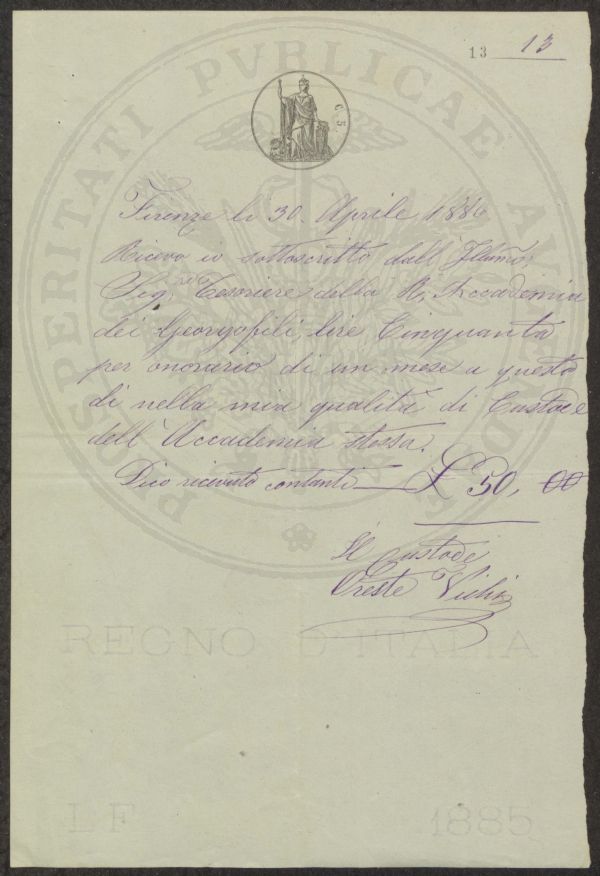 13 13
C. 5.
PROSPERITATI PVBLICAE AVGENDAE
Firenze li 30. Aprile, 1886
Ricevo io sottoscritto dall' Illumo,
Sigre Tesoriere della R. Accademia
dei Georgofili, lire Cinquanta
per onorario di un mese a questo
dì nella mia qualità di Custode
dell' Accademia stessa.
Dico ricevuto contanti £ 50, 00
Il Custode
Oreste
REGNO D'ITALIA
LF 1885